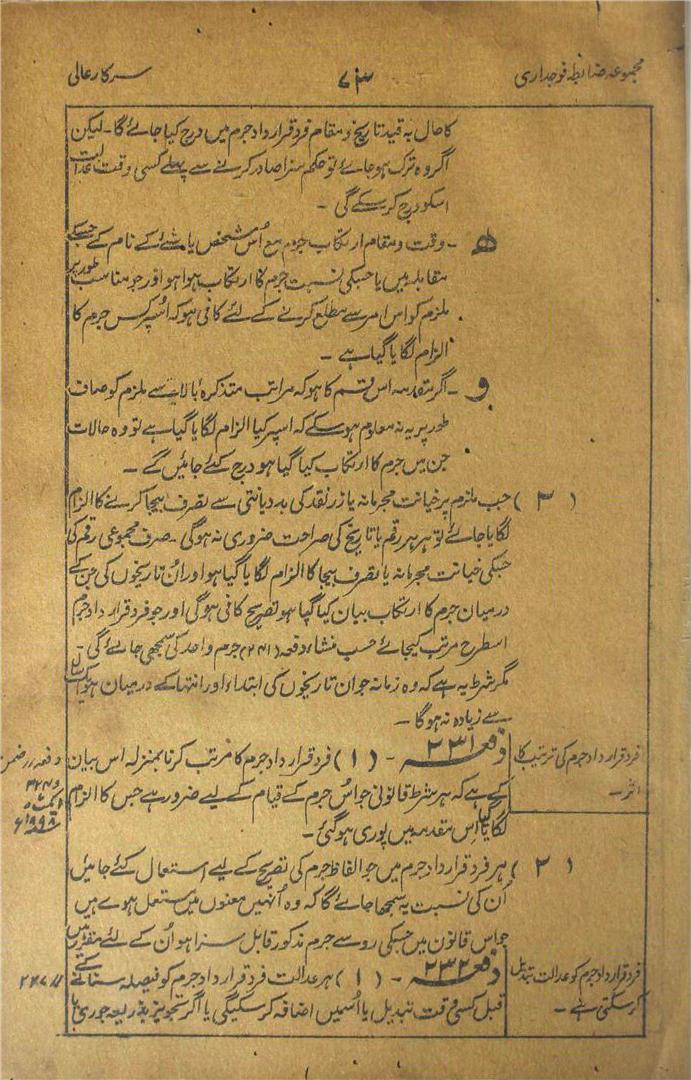 مجموعہ ضابطہ فوجداری
۷۳
سرکار عالی
کا حال بہ قید تاریخ و مقام فرد قرار داد جرم میں درج کیا جائے گا ۔ لیکن
اگر وہ ترک ہو جائے تو حکم سزا صادر کرنے سے پہلے کسی وقت عدالت
اسکو درج کر سکے گی ۔
ھ ۔ وقت و مقام ارتکاب جرم مع اُس شخص یا شئے کے نام کے جسکے
مقابلہ میں یا جسکی نسبت جرم کا ارتکاب ہوا ہو اور جو مناسب طور پر
ملزم کو اس امر سے مطلع کرنے کے لئے کافی ہو کہ اُسپر کس جرم کا
الزام لگایا گیا ہے ۔
و ۔ اگر مقدمہ اس قسم کا ہو کہ مراتب متذکرہ بالا سے ملزم کو صاف
طور پر یہ نہ معلوم ہو سکے کہ اسپر کیا الزام لگایا گیا ہے تو وہ حالات
جن میں جرم کا ارتکاب کیا گیا ہو درج کئے جائیں گے ۔
( ۳ ) جب ملزم پر خیانت مجرمانہ یا زر نقد کی بد دیانتی سے تصرف بیجا کرنے کا الزام
لگایا جائے تو ہر ہر رقم یا تاریخ کی صراحت ضروری نہ ہوگی ۔ صرف مجموعی رقم کی
جسکی خیانت مجرمانہ یا تصرف بیجا کا الزام لگایا گیا ہو اور اُن تاریخوں کی جن کے
درمیان جرم کا ارتکاب بیان کیا گیا ہو تصریح کافی ہوگی اور جو فرد قرار داد جرم
اسطرح مرتب کیجائے حسب منشاء دفعہ (۲۴۱) جرم واحد کی سمجھی جائے گی ۔
مگر شرط یہ ہے کہ وہ زمانہ جو ان تاریخوں کی ابتداء اور انتہا کے درمیان ہو ایک سال
سے زیادہ نہ ہوگا ۔
فرد قرار داد جرم کی ترتیب کا
اثر ۔
دفعہ ۲۳۱ ۔ ( ۱ ) فرد قرار داد جرم کا مرتب کرنا بمنزلہ اس بیان
کے ہے کہ ہر شرط قانونی جو اُس جرم کے قیام کے لیے ضرور ہے جس کا الزام
لگایا گیا اِس مقدمہ میں پوری ہو گئی ۔
( ۲ ) ہر فرد قرار داد جرم میں جو الفاظ جرم کی تصریح کے لیے استعمال کئے جائیں
اُن کی نسبت یہ سمجھا جائے گا کہ وہ اُنہیں معنوں میں مستعمل ہوے ہیں
جو اس قانون میں جسکی رو سے جرم مذکور قابل سزا ہو اُن کے لئے مقرر ہیں
فرد قرار داد جرم کو عدالت تبدیل
کر سکتی ہے ۔
دفعہ ۲۳۲ ۔ ( ۱ ) ہر عدالت فرد قرار داد جرم کو فیصلہ سنانے کے
قبل کسی وقت تبدیل یا اُسمیں اضافہ کر سکیگی یا اگر تجویز بذریعہ جوری یا